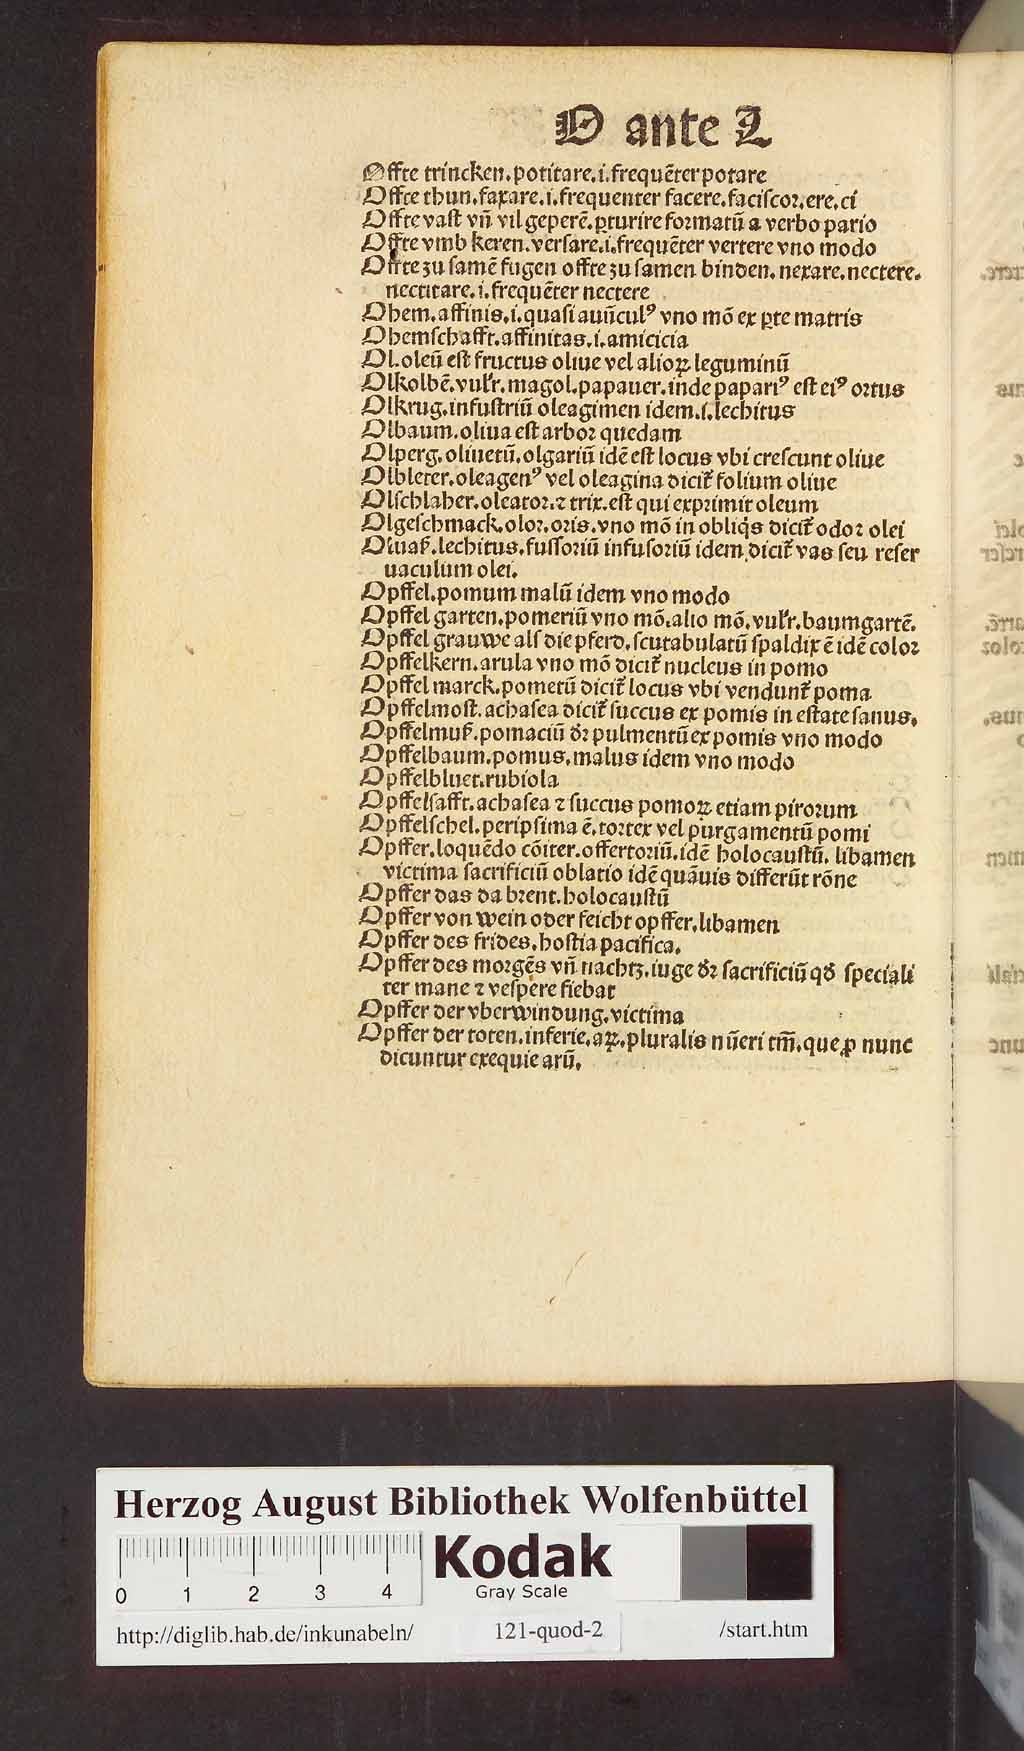 O ante L
Offte trincken.potitare.i.frequēter potare
Offte thun.faxare.i.frequenter facere.faciſcor.ere.ci
Offte vaſt vn̄ vil geperē.ꝑturire formatū a verbo pario
Offte vmb keren.verſare.i.frequēter vertere vno modo
Offte zu ſamē fugen offte zu ſamen binden.nexare.nectere.
nectitare.i.frequēter nectere
Ohem.affinis.i.quaſi auūculꝰ vno mō ex ꝑte matris
Ohemſchafft.affinitas.i.amicicia
Ol.oleū eſt fructus oliue vel alioꝝ leguminū
Olkolbē.vulr̄.magol.papauer.inde papariꝰ eſt eiꝰ ortus
Olkrug.infuſtriū oleagimen idem.i.lechitus
Olbaum.oliua eſt arbor quedam
Olperg.oliuetū.olgariū idē eſt locus vbi creſcunt oliue
Olbleter.oleagenꝰ vel oleagina dicit̄ folium oliue
Olſchlaher.oleator.ꝛ trix.eſt qui exprimit oleum
Olgeſchmack.olor.oris.vno mō in obliq̄s dicit̄ odor olei
Oluaß.lechitus.fuſſoriū infuſoriū idem dicit̄ vas ſeu reſer
uaculum olei.
Opffel.pomum malū idem vno modo
Opffel garten.pomeriū vno mō.alio mō.vulr̄.baumgartē.
Opffel grauwe alſ die pferd.ſcutabulatū ſpaldix ē idē color
Opffelkern.arula vno mō dicit̄ nucleus in pomo
Opffel marck.pometū dicit̄ locus vbi vendunt̄ poma
Opffelmoſt.achaſea dicit̄ ſuccus ex pomis in eſtate ſanus.
Opffelmuß.pomaciū dr̄ pulmentū ex pomis vno modo
Opffelbaum.pomus.malus idem vno modo
Opffelbluet.rubiola
Opffelſafft.achaſea ꝛ ſuccus pomoꝝ etiam pirorum
Opffelſchel.peripſima ē.cortex vel purgamentū pomi
Opffer.loquēdo cōiter.offertoriū.idē holocauſtū. libamen
victima ſacrificiū oblatio idē quāuis differūt rōne
Opffer das da brent.holocauſtū
Opffer von wein oder feicht opffer.libamen
Opffer des frides.hoſtia pacifica.
Opffer des morgēs vn̄ nachtz.iuge dr̄ ſacrificiū qd̄ ſpeciali
ter mane ꝛ veſpere fiebat
Opffer der vberwindung.victima
Opffer der toten.inferie.aꝝ.pluralis nūeri tm̄.que ꝓ nunc
dicuntur exequie arū.
Herzog August Bibliothek Wolfenbüttel
0 1 2 3 4
Kodak
Gray Scale
http://diglib.hab.de/inkunabeln/ 121-quod-2 /start.htm